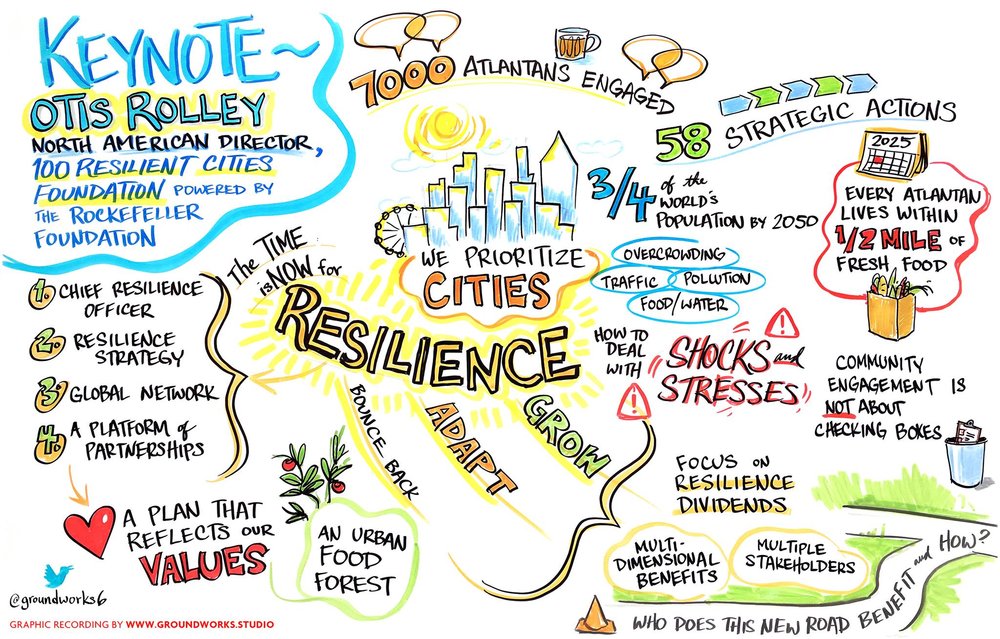 KEYNOTE~
OTIS ROLLEY
NORTH AMERICAN DIRECTOR,
100 RESILIENT CITIES
FOUNDATION POWERED BY
THE ROCKEFELLER
FOUNDATION
7000 ATLANTANS ENGAGED
58 STRATEGIC ACTIONS
2025
EVERY ATLANTAN
LIVES WITHIN
1/2 MILE OF
FRESH FOOD
3/4 of the
WORLD'S
POPULATION BY 2050
WE PRIORITIZE
CITIES
OVERCROWDING
TRAFFIC
POLLUTION
FOOD/WATER
The TIME
is NOW for
RESILIENCE
1. CHIEF RESILIENCE
OFFICER
2. RESILIENCE
STRATEGY
3. GLOBAL NETWORK
4. A PLATFORM of
PARTNERSHIPS
HOW TO
DEAL
WITH
SHOCKS and
STRESSES
!
!
COMMUNITY
ENGAGEMENT IS
NOT ABOUT
CHECKING BOXES
BOUNCE BACK
ADAPT
GROW
FOCUS ON
RESILIENCE
DIVIDENDS
MULTI-
DIMENSIONAL
BENEFITS
MULTIPLE
STAKEHOLDERS
A PLAN THAT
REFLECTS OUR
VALUES
AN URBAN
FOOD
FOREST
WHO DOES THIS NEW ROAD BENEFIT and HOW?
@groundworks6
GRAPHIC RECORDING BY WWW.GROUNDWORKS.STUDIO